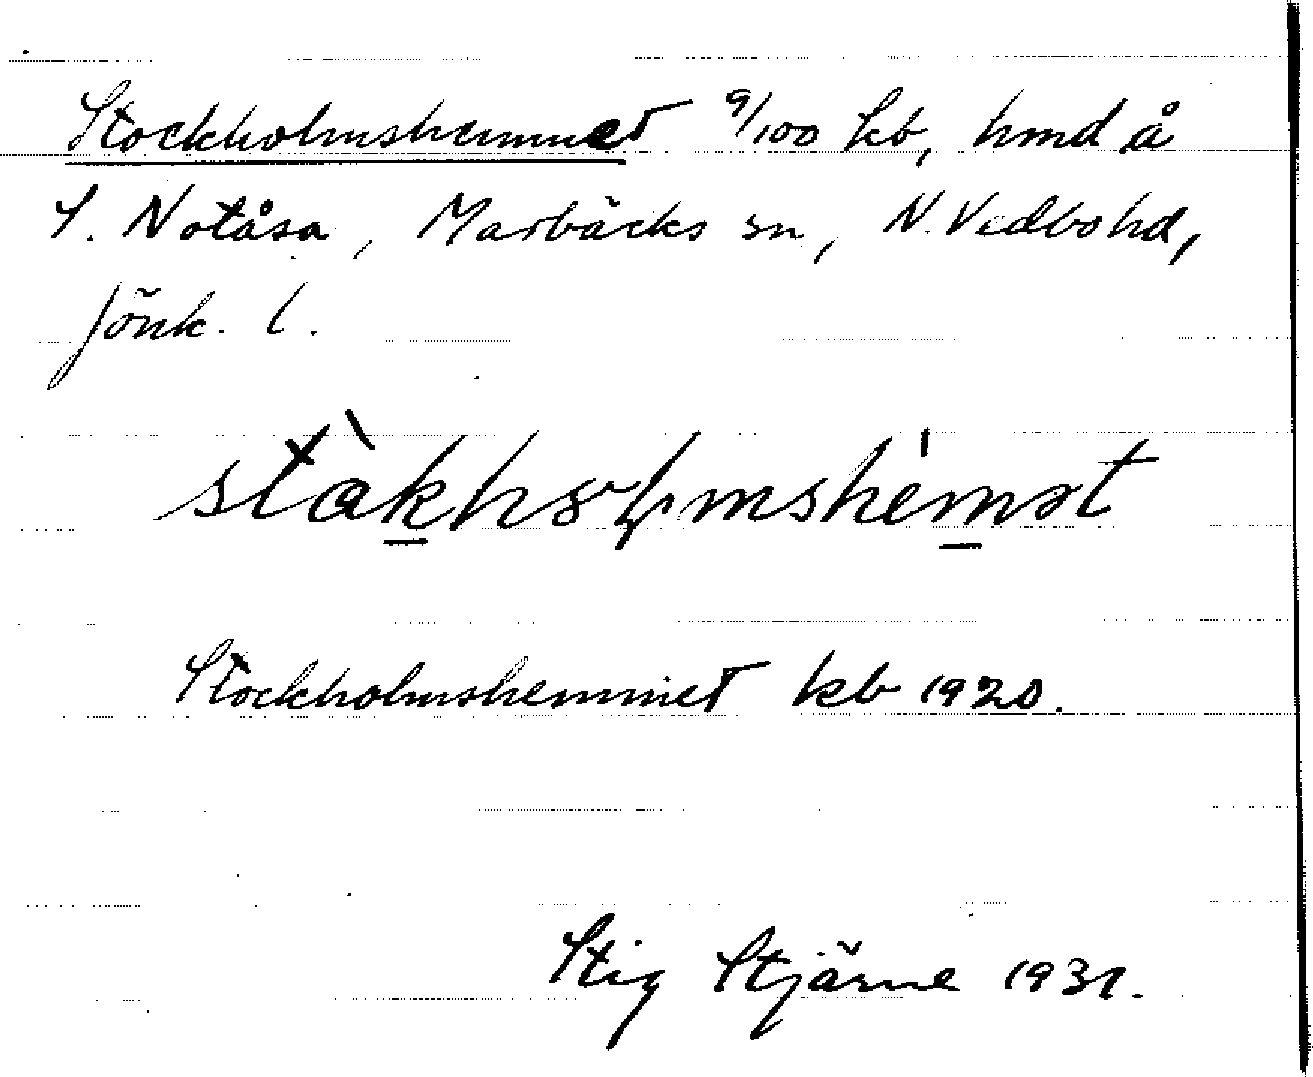 Stockholmshemmet 9/100 kb, hmd å
S. Notåsa, Marbäcks sn, N. Vedbo hd,
Jönk. l.
stàkhoɫmshémət
Stockholmshemmet kb 1920.
Stig Stjärne 1931.